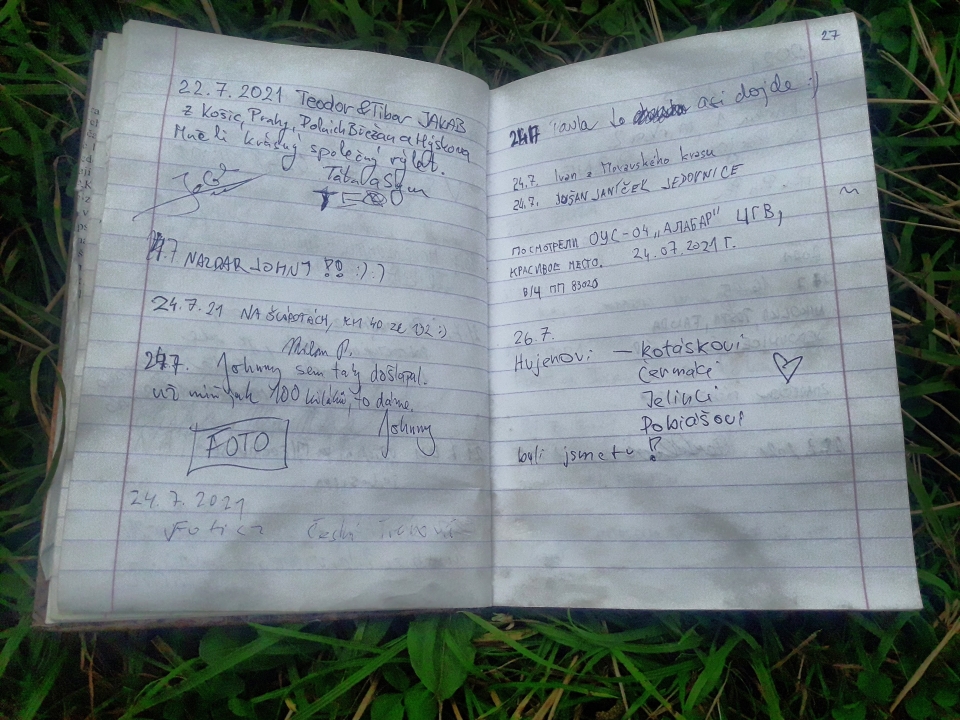 22.7.2021 Teodor & Tibor JAKAB
z Košic, Prahy, Dolních Břežan a Hýskova
Měli krásný společný výlet.
Táta a Syn
TEO
24.7 NAZDAR JOHNY !! :) :)
24.7.21 NA ŠLAPOTÁCH, KM 40 ZE 132 :)
Milan P.
24.7. Johnny sem taky došlapal.
už míň jak 100 kiláků, to dáme.
Johnny
FOTO
24.7.2021
27
24.7 to asi dojde :)
24.7. Ivan z Moravského krasu
24.7. DUŠAN JANÍČEK JEDOVNICE
ПОСМОТРЕЛИ ОУС-04 „АЛАБАР" ЦГВ,
КРАСИВОЕ МЕСТО. 24.07.2021 Г.
В/Ч ПП 83020
26.7.
Hujerovi — Kotáskovi
Čermáci
Jelínci
Pobiášovi
byli jsme tu !?